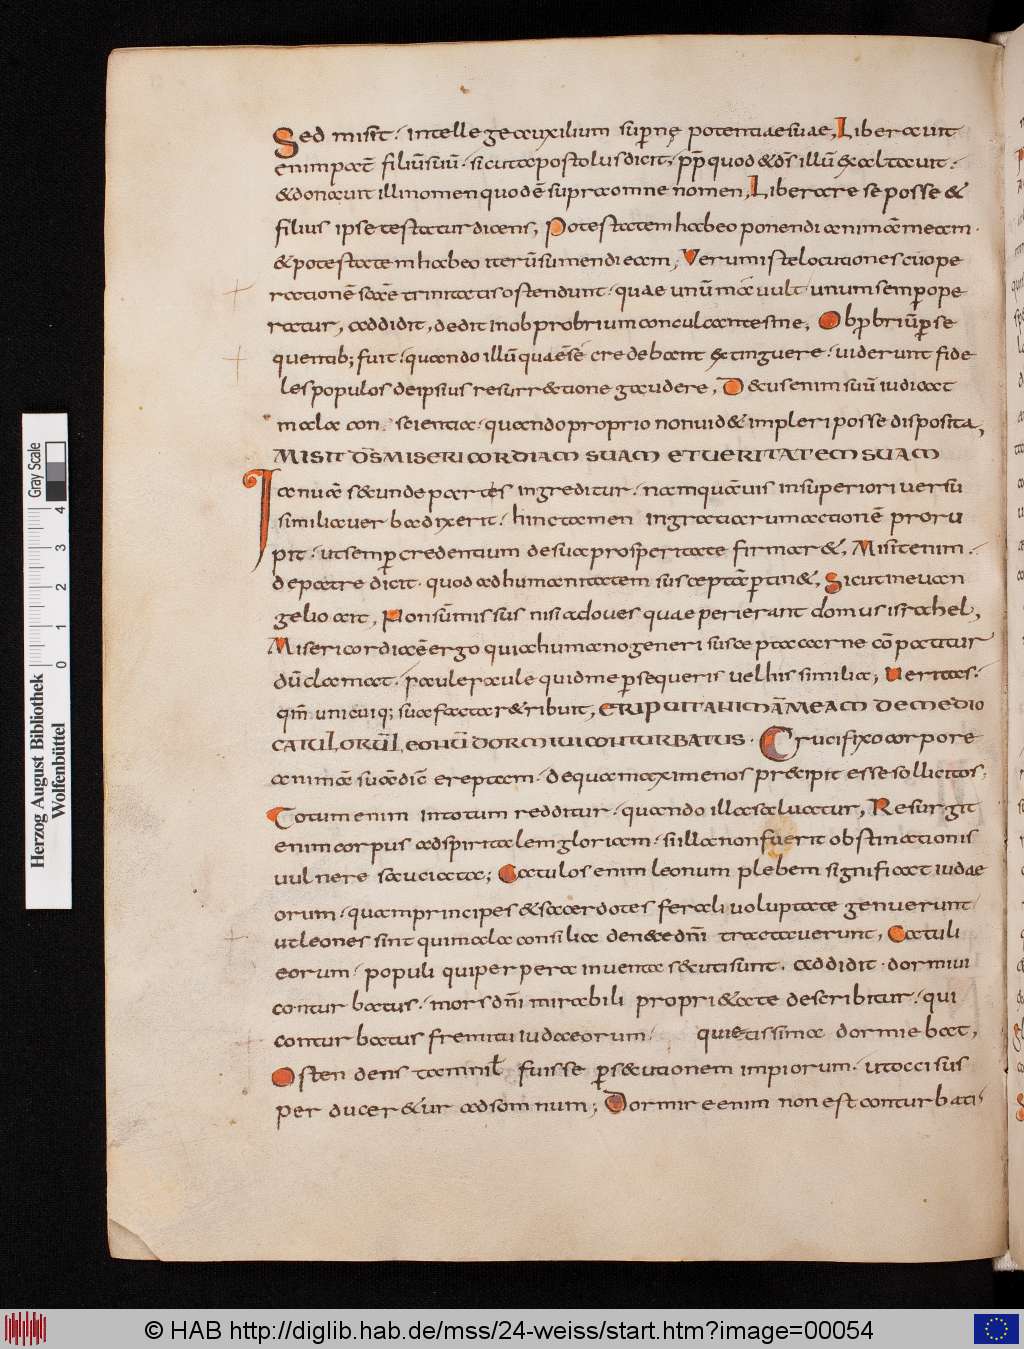 Sed misit · intellege auxilium supernę potentiae suae, Liberauit
enim pat̄ filiū suū · sicut apostolus dicit, pp̄ quod & d̄s illū exaltauit ·
& donauit illi nomen quod ē supra omne nomen, Liberare se posse &
filius ipse testatur dicens, Potestatem habeo ponendi animā meam ·
& potestatem habeo iterū sumendi eam; Verum iste locutiones cūope
rationē sc̄ae trinitatis ostendunt · quae unū uult · unum semper ope
ratur, addidit, dedit in obprobrium conculcantes me, Obprbriū perse
quentib; fuit · quando illū quaē se credebant extinguere · uiderunt fide
les populos de ipsius resurrectione gaudere, Decus enim suū iudicat
mala con scientia · quando proprio non uid& impleri posse disposita,
MISIT DS̄ MISERICORDIAM SUAM ET UERITATEM SUAM
Ianuā secunde partes ingreditur · nam quāuis in superiori uersu
similia uerba dixerit · hinc tamen in gratiarum actionē proru
pit · ut semper credentium de sua prosperitate firmar&, Misit enim ·
de patre dicit · quod ad humanitatem susceptā pertin&, Sicut in euan
gelio ait, Non sum missus nisi ad oues quae perierant domus israhel,
Misericordia ē ergo quia humano generi suscepta carne cōpatitur
dū clamat · saule saule quid me persequeris uel his similia; Ueritas ·
qm̄ unicuiq; sua facta r&ribuit, ERIPUIT ANIMĀ MEAM DE MEDIO
CATULORŪ LEONŪ DORMIUI CONTURBATUS · Crucifixo corpore
animā suā dic̄ ereptam · de qua maxime nos precipit esse sollicitos,
Totum enim in totum redditur · quando illa saluatur, Resurgit
enim corpus ad spiritalem gloriam · si illa non fuerit obstinationis
uulnere sauciata; Catulos enim leonum plebem significat iudae
orum · quam principes & sacerdotes ferali uoluptate genuerunt
ut leones sint qui mala consilia de nece dn̄i tractauerunt, Catuli
eorum · populi qui perpera inuenta secuti sunt · addidit · dormiui
conturbatus · mors dn̄i mirabili propri&ate describitur · qui
conturbatus fremitu iudaeorum · quietissima dormiebat,
Ostendens tam nil fuisse persecutionem impiorum · ut occisus
per ducer&ur ad somnum; Dormire enim non est conturbati ·
Herzog August Bibliothek
Wolfenbüttel
Gray Scale
0 1 2 3 4
© HAB http://diglib.hab.de/mss/24-weiss/start.htm?image=00054